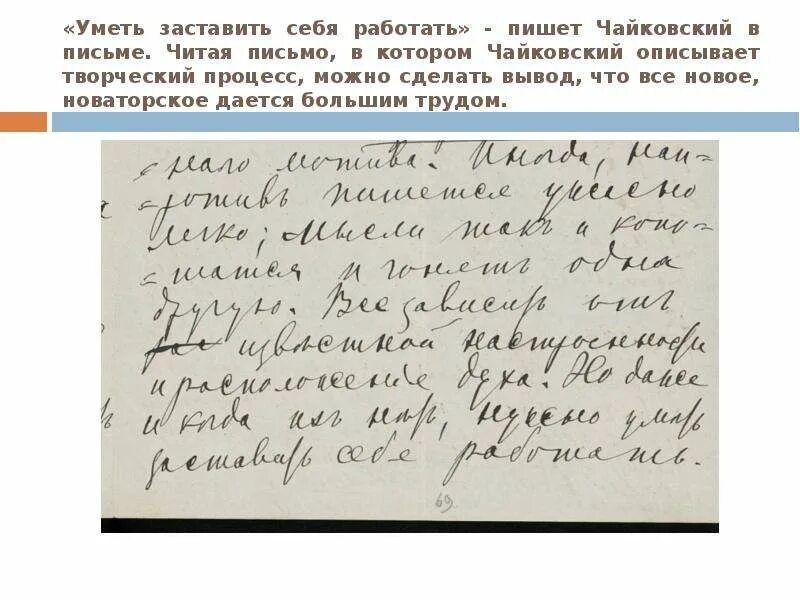 «Уметь заставить себя работать» - пишет Чайковский в
письме. Читая письмо, в котором Чайковский описывает
творческий процесс, можно сделать вывод, что все новое,
новаторское дается большим трудом.
=наго мотива. Иногда, нап=
=ротивъ пишется ужасно
легко; мысли такъ и копо=
=шатся и гонятъ одна
другую. Все зависитъ отъ
извѣстной настроенности
и расположенія духа. Но даже
и когда ихъ нѣтъ, нужно умѣть
заставить себя работать.
69